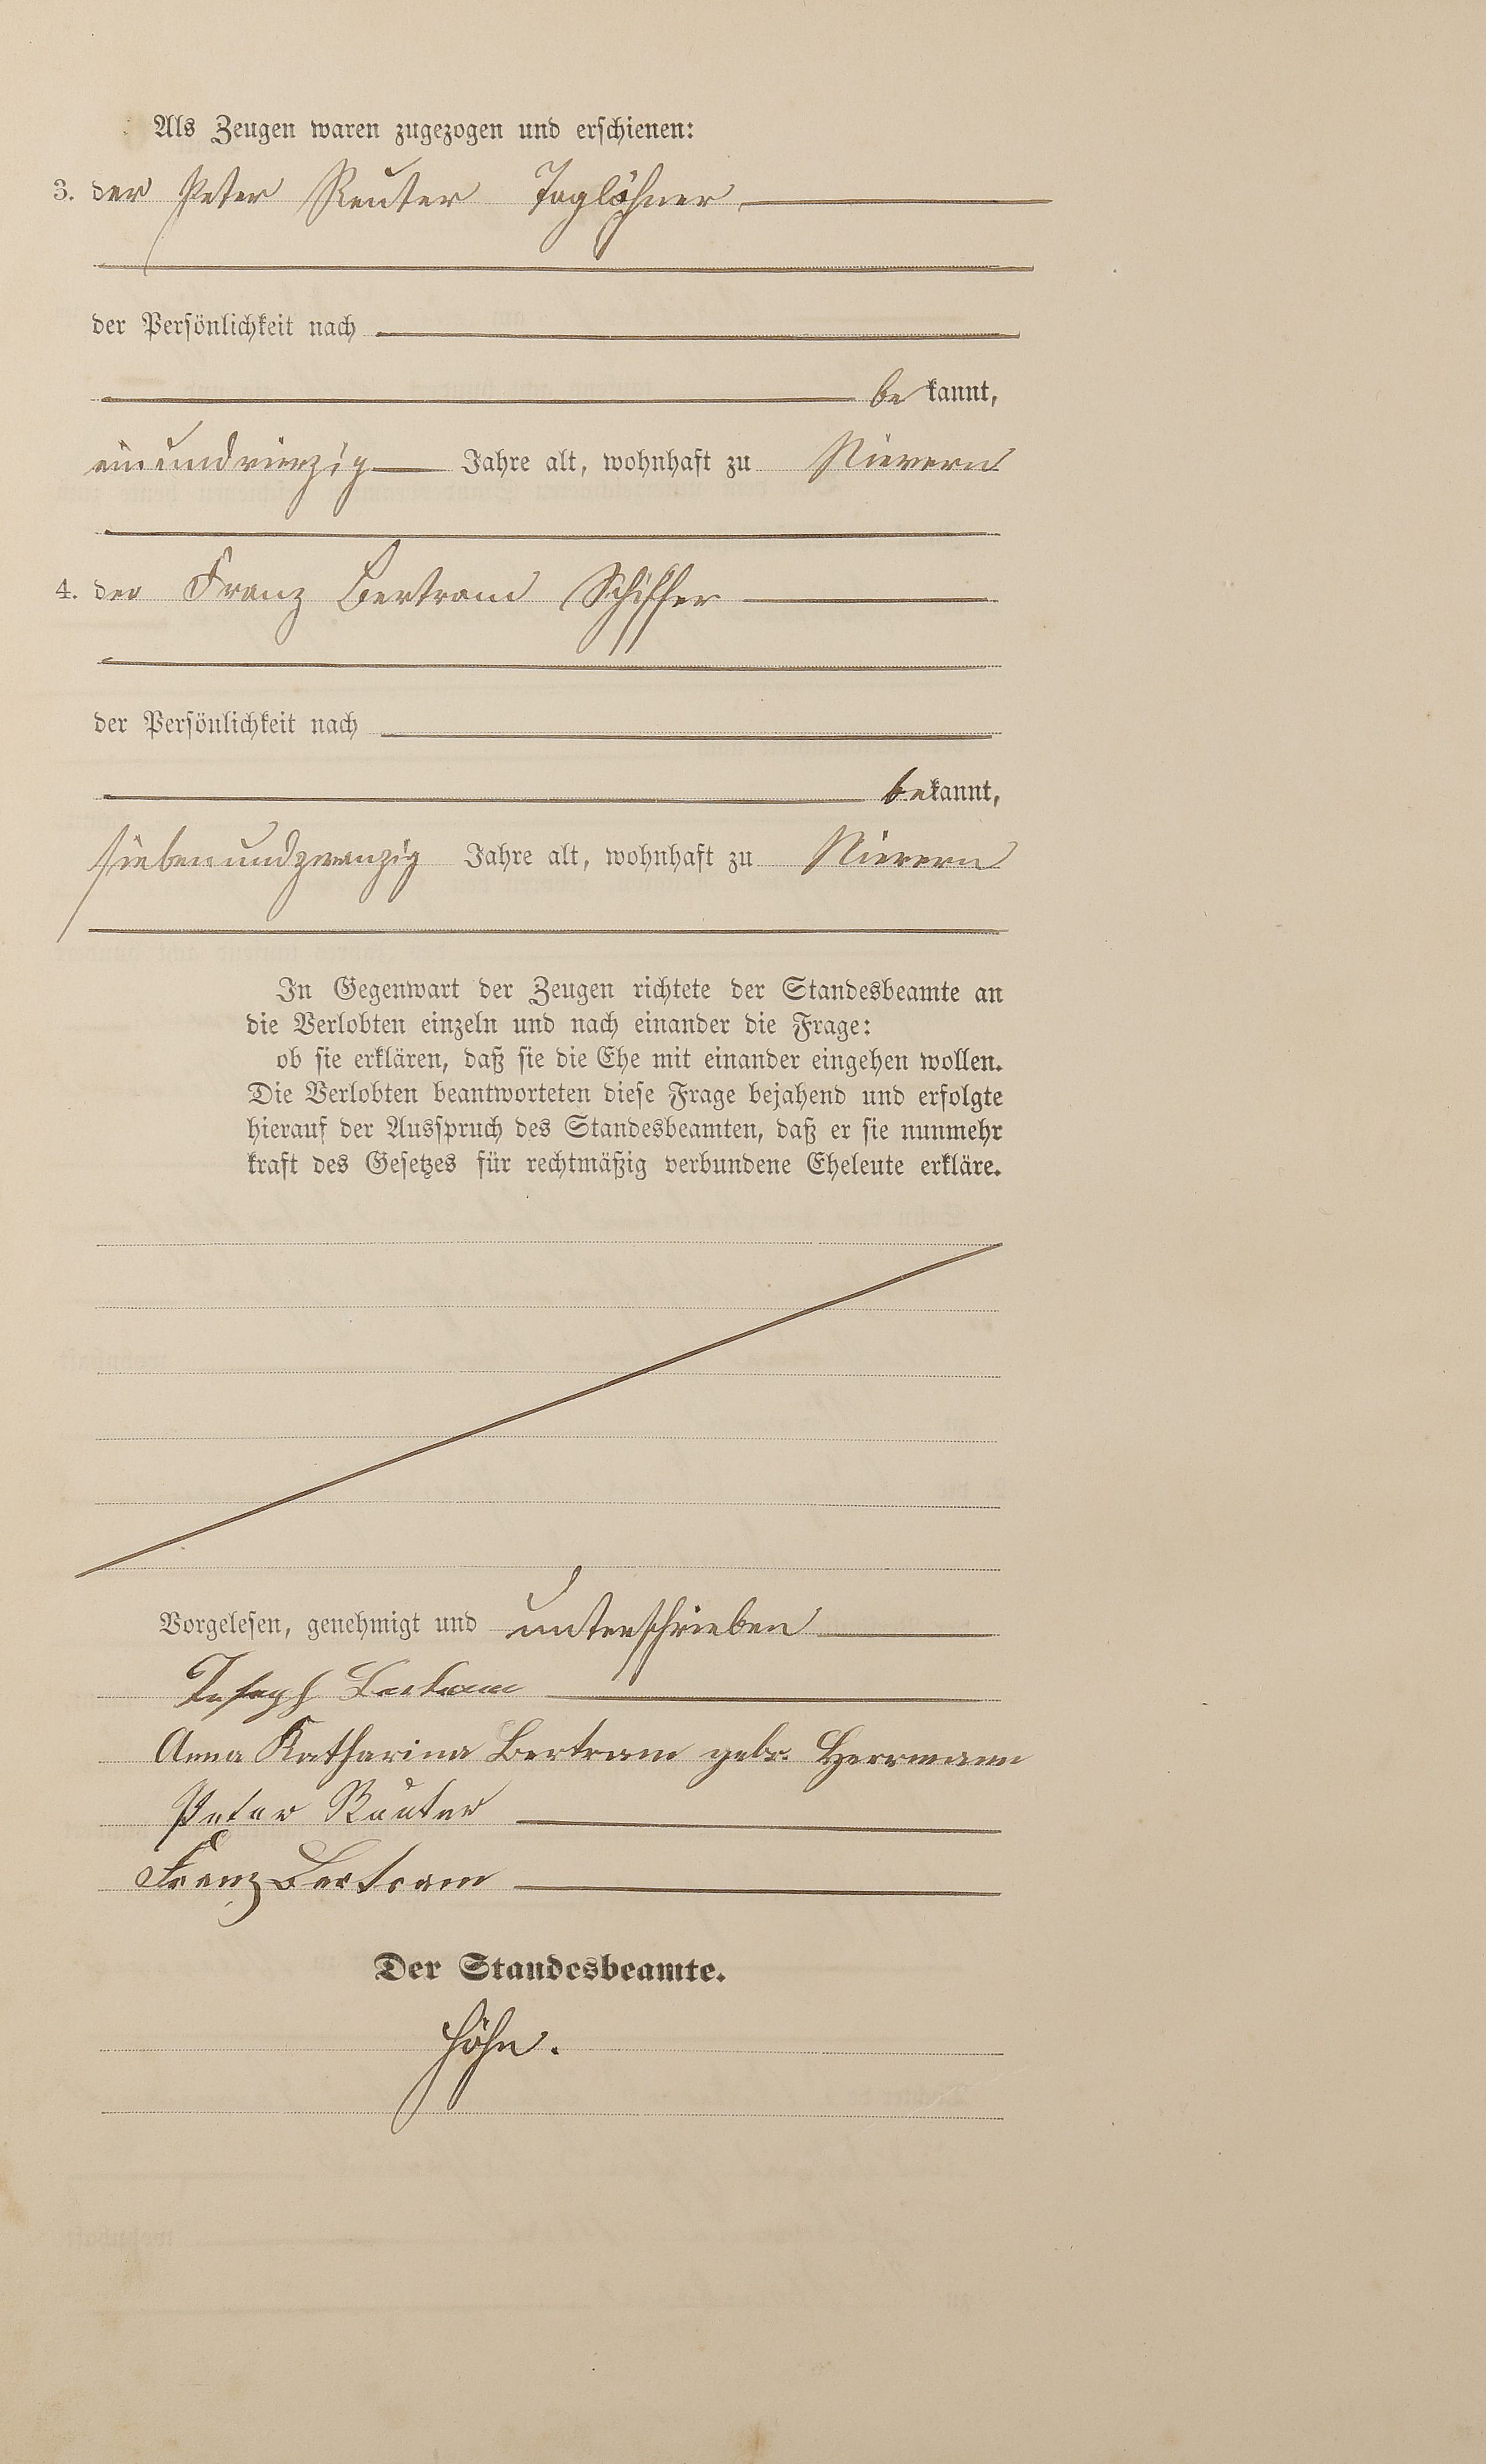 Als Zeugen waren zugezogen und erschienen:
3. der Peter Reuter Taglöhner
der Persönlichkeit nach
be kannt,
einundvierzig Jahre alt, wohnhaft zu Nievern
4. der Franz Bertram Schiffer
der Persönlichkeit nach
bekannt,
siebenundzwanzig Jahre alt, wohnhaft zu Nievern
In Gegenwart der Zeugen richtete der Standesbeamte an
die Verlobten einzeln und nach einander die Frage:
ob sie erklären, daß sie die Ehe mit einander eingehen wollen.
Die Verlobten beantworteten diese Frage bejahend und erfolgte
hierauf der Ausspruch des Standesbeamten, daß er sie nunmehr
kraft des Gesetzes für rechtmäßig verbundene Eheleute erkläre.
Vorgelesen, genehmigt und unterschrieben
Joseph Bertram
Anna Katharina Bertram gebr. Herrmann
Peter Reuter
Franz Bertram
Der Standesbeamte.
Höhn.